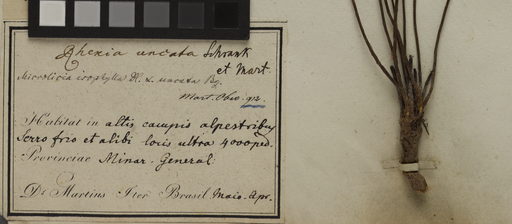 Rhexia uncata Schrank
et Mart.
Microlicia isophylla DC. α. uncata
Mart. Obs. 912.
Habitat in altis campis alpestribus
Serro frio et alibi locis ultra 4000 ped.
Provinciae Minar. General.
Dr Martius Iter Brasil. Maio-Apr.